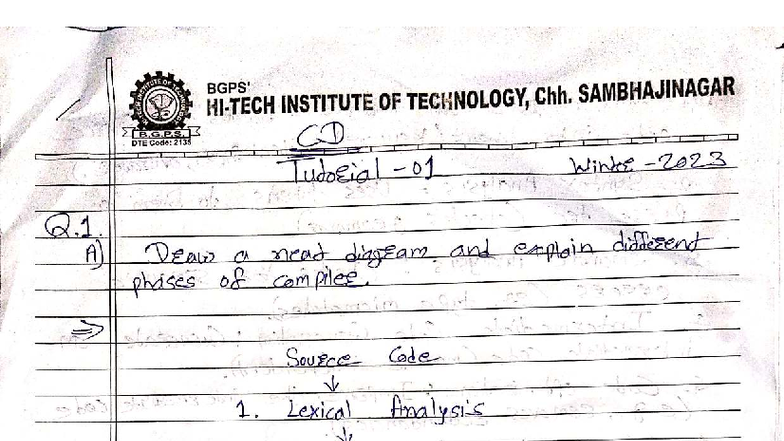 BGPS'
HI-TECH INSTITUTE OF TECHNOLOGY, Chh. SAMBHAJINAGAR
B.G.P.S.
DTE Code: 2135
CD
Tutorial - 01 Winter - 2023
Q.1.
A) Draw a neat diagram and explain different
phases of compiler.
⇒
Source Code
↓
1. Lexical Analysis
↓